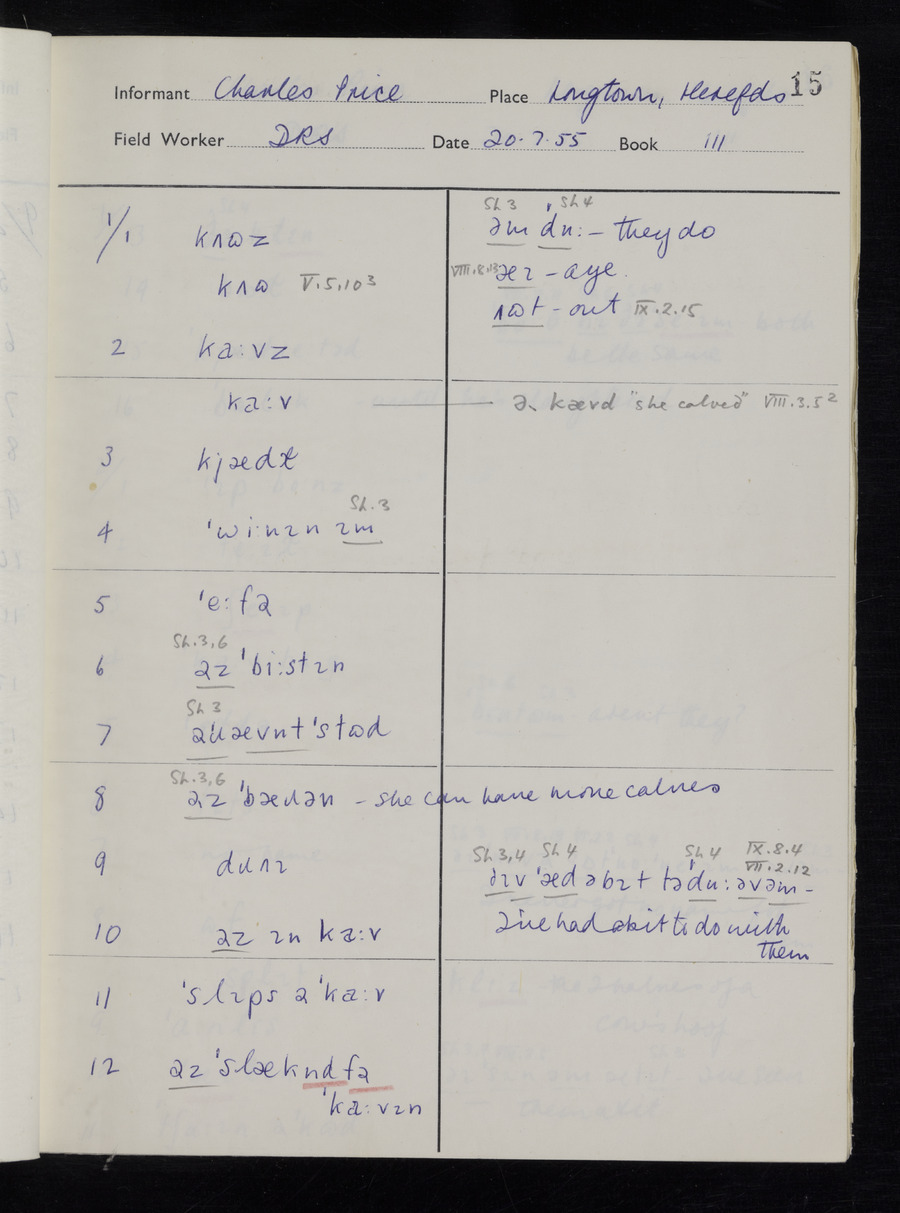 15
Informant Charles Price Place Longtown, Herefds
Field Worker DRS Date 20.7.55 Book III
1/1 kʌɷz
kʌɷ V.5.10³
2 ka:vz
ka:v
3 kjædɫ
Sh.3
4 ˈwi:nɪn ɪm
5 ˈe:fə
Sh.3,6
6 əz ˈbi:stɪn
Sh 3
7 ˈstɷd
Sh.3,6
8 əz ˈbæɹən – she can have more calves
9 dɹʌɪ
10 əz ɪn ka:v
11 ˈslɪps ə ˈka:v
12 əz ˈslæknd fə
ˈka:vɪn
Sh 3 Sh 4
əm ˈdu: – they do
VIII.8.13 æɪ – aye.
ʌɷt – out IX.2.15
ə kævd "she calved" VIII.3.5²
Sh 3,4 Sh 4 Sh 4 IX.8.4
VII.2.12
əɪv ˈæd əbɪt təˈdu: əvəm –
I've had a bit to do with
them